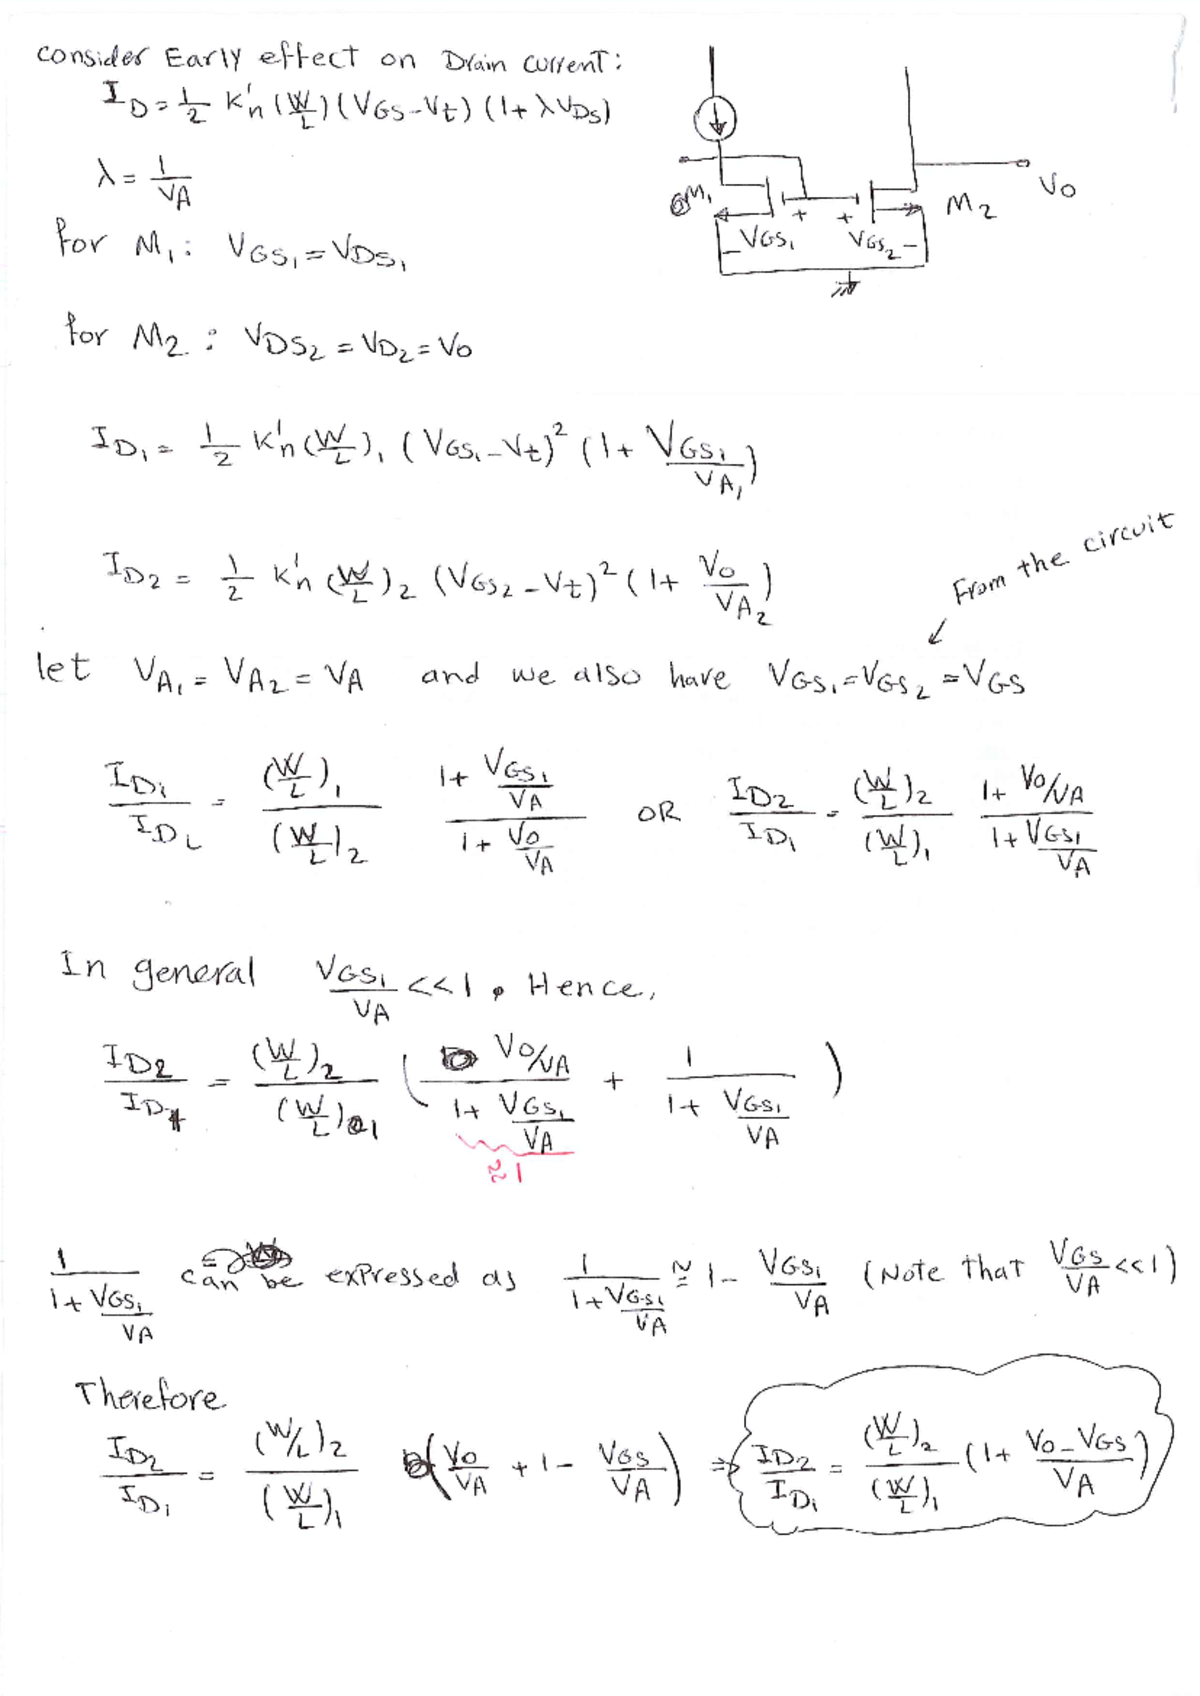 consider Early effect on Drain current:
I_D = 1/2 K'n (W/L) (VGS - Vt) (1 + λVDS)
λ = 1/VA
for M1: VGS1 = VDS1
M1
M2
Vo
- VGS1 +
+ VGS2 -
for M2: VDS2 = VD2 = Vo
ID1 = 1/2 K'n (W/L)1 (VGS1 - Vt)² (1 + VGS1/VA1)
ID2 = 1/2 K'n (W/L)2 (VGS2 - Vt)² (1 + Vo/VA2)
From the circuit
let VA1 = VA2 = VA and we also have VGS1 = VGS2 = VGS
ID1/ID2 = (W/L)1/(W/L)2 (1 + VGS1/VA)/(1 + Vo/VA) OR ID2/ID1 = (W/L)2/(W/L)1 (1 + Vo/VA)/(1 + VGS1/VA)
In general VGS1/VA <<1. Hence,
ID2/ID1 = (W/L)2/(W/L)1 ( (Vo/VA)/(1 + VGS1/VA) + 1/(1 + VGS1/VA) )
≈1
1/(1 + VGS1/VA) can be expressed as 1/(1 + VGS1/VA) ≅ 1 - VGS1/VA (Note that VGS/VA <<1)
Therefore
ID2/ID1 = (W/L)2/(W/L)1 (Vo/VA + 1 - VGS/VA) ⇒ ID2/ID1 = (W/L)2/(W/L)1 (1 + (Vo - VGS)/VA)